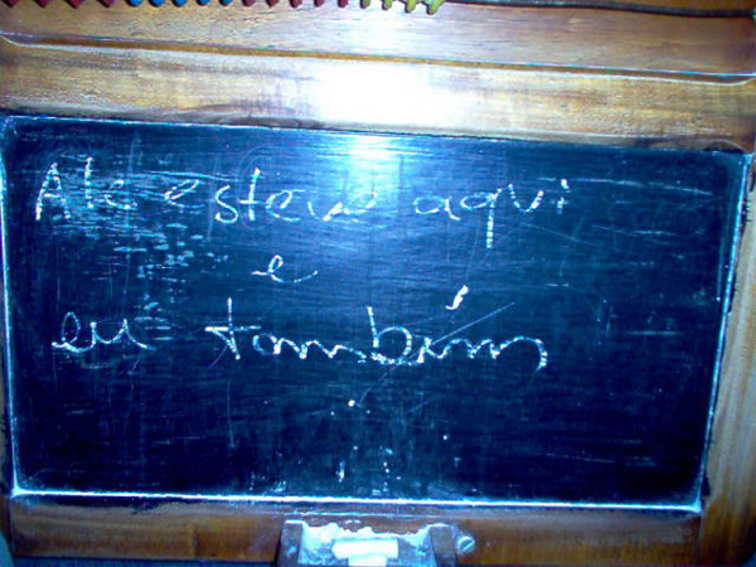 Ale esteve aqui
e
eu também